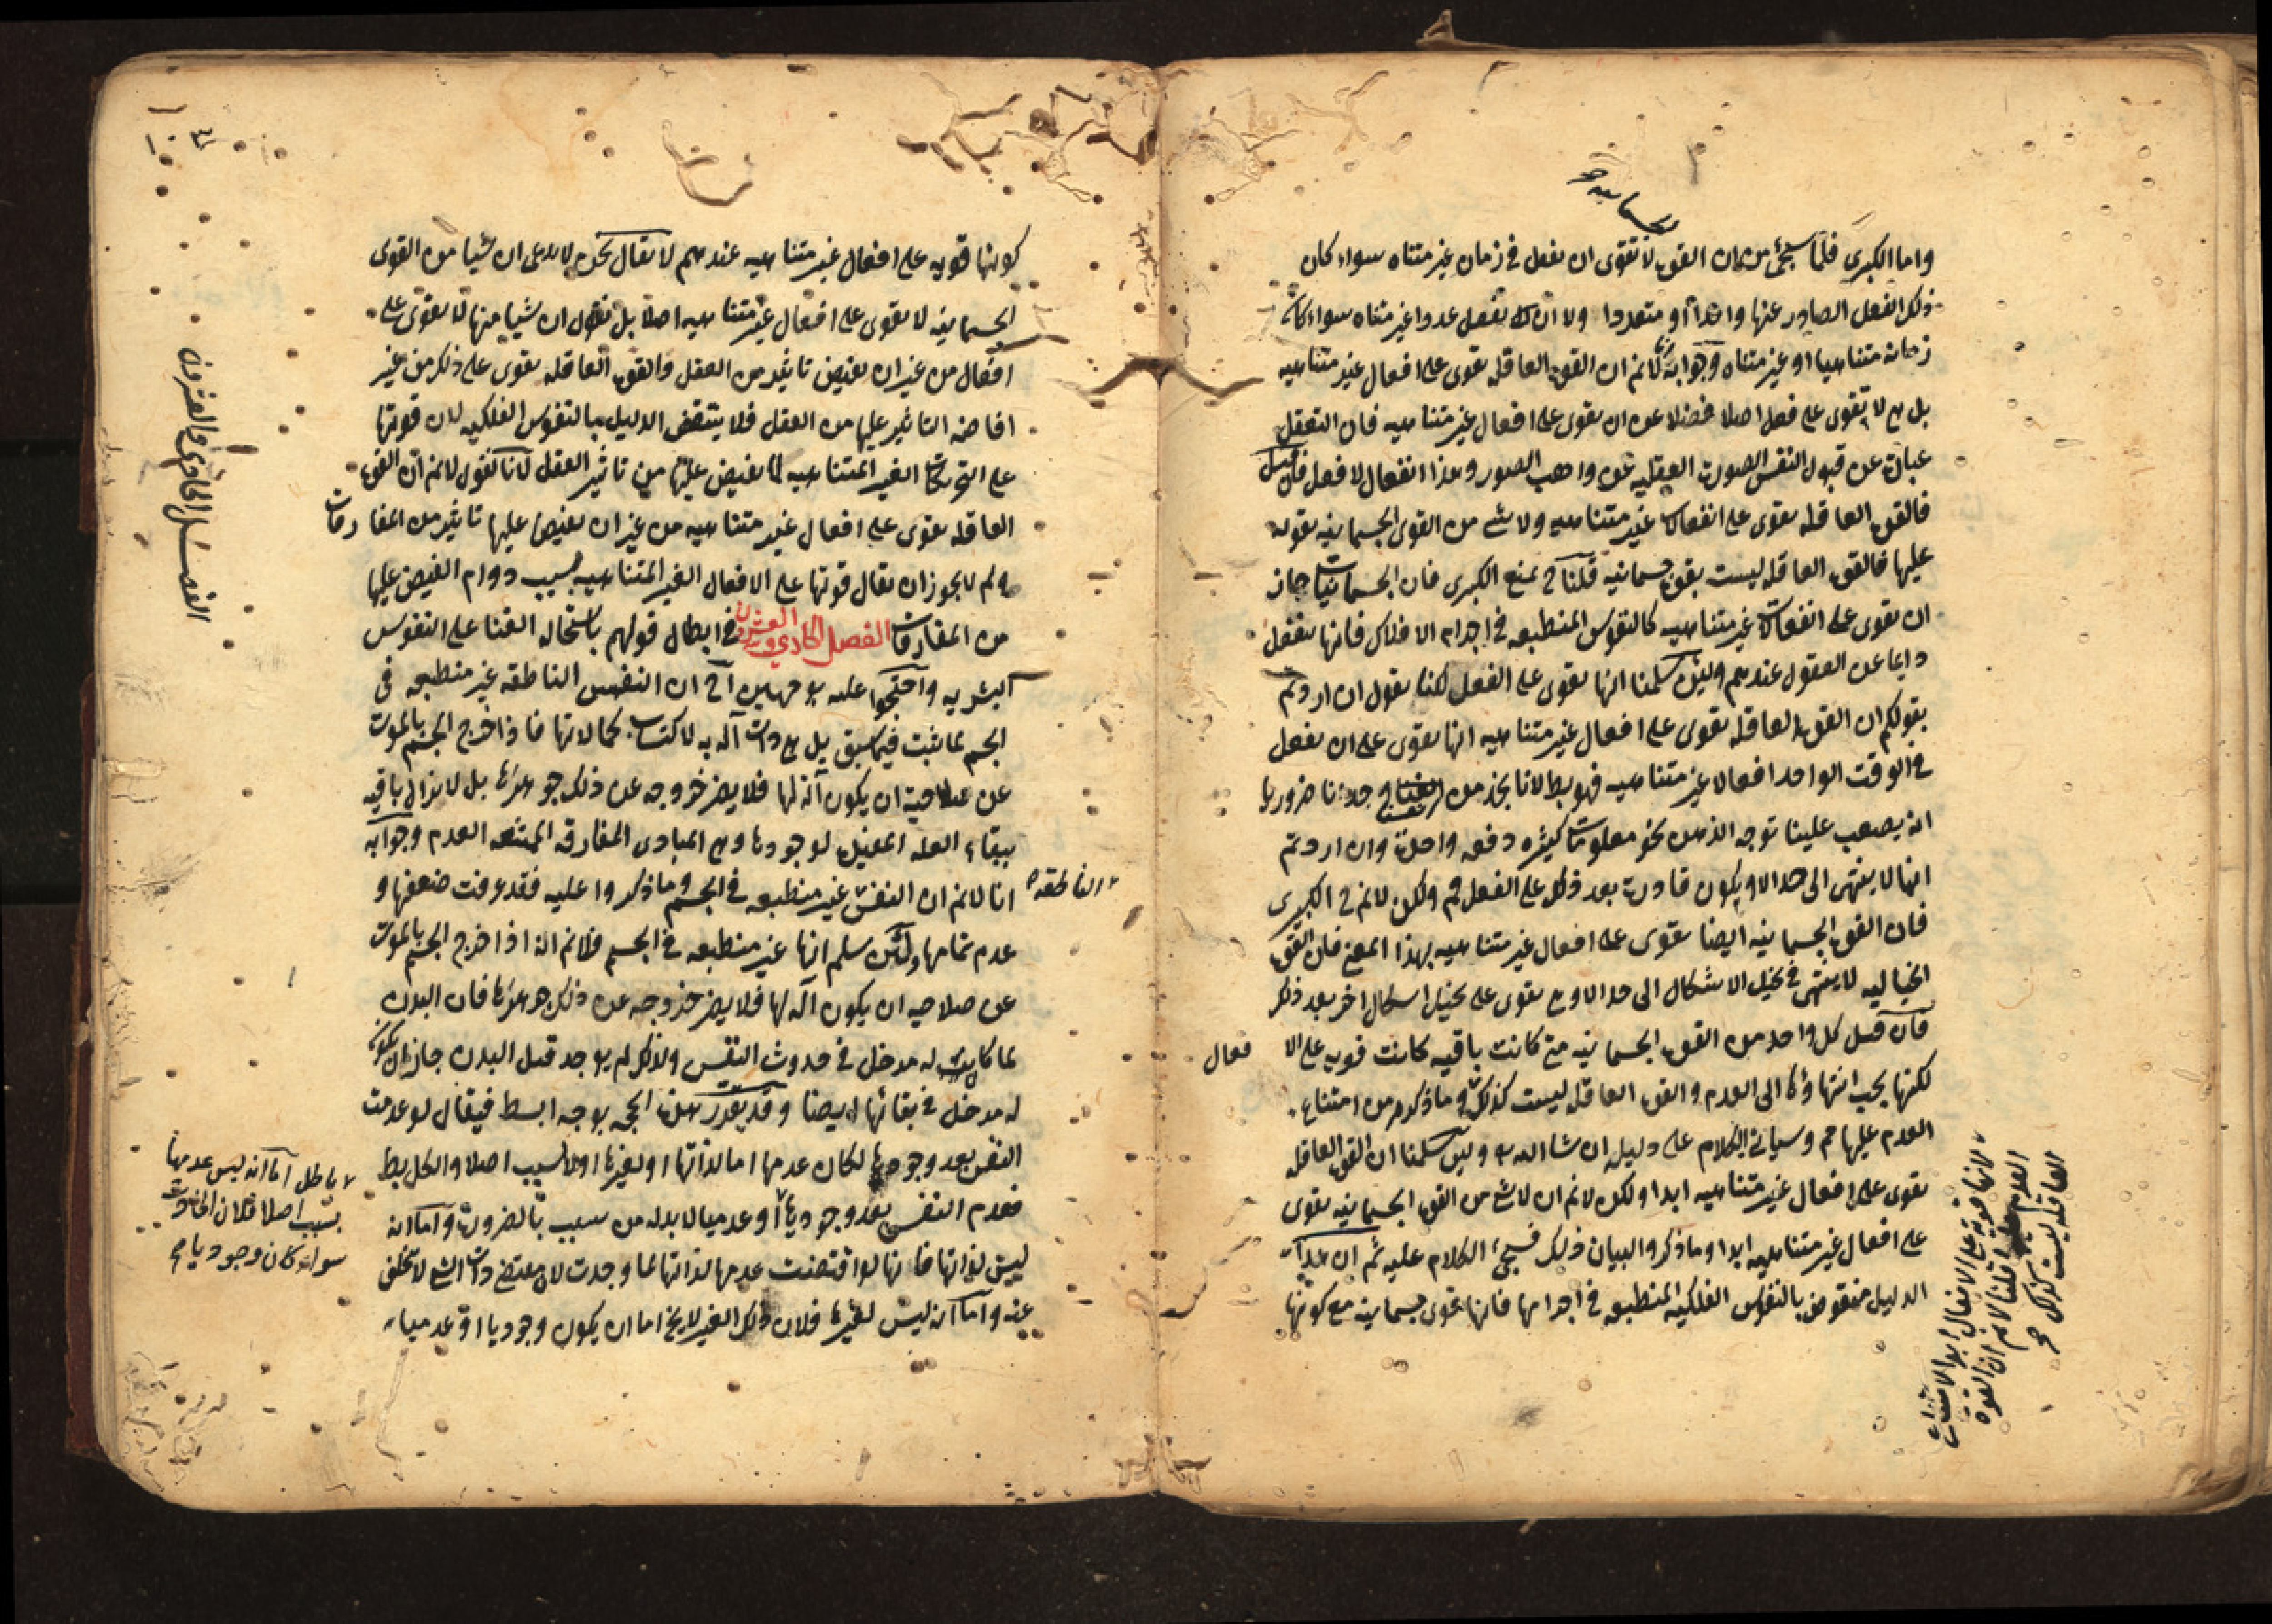 الجسمانيه صح
واما الكبرى فلما سيجئ من ان القوه لا تقوى ان يفعل في زمان غير متناه سواء كان
ذلك الفعل الصادر عنها واحدا او متعددا ولا ان يفعل عددا غير متناه سواء كان
زمانه متناهيا او غير متناه وجوابه انا لانم ان القوه العاقله تقوى على افعال غير متناهيه
بل هي لا تقوى على فعل اصلا فضلا عن ان يقوى على افعال غير متناهيه فان التعقل
عباره عن قبول النفس الصوره العقليه عن واهب الصور وهذا انفعال لا فعل فان قيل
فالقوه العاقله يقوى على انفعالات غير متناهيه ولا شى من القوى الجسمانيه بقويه
عليها فالقوه العاقله ليست بقوه جسمانيه قلنا ح نمنع الكبرى فان الجسمانيات جاز
ان تقوى على انفعالات غير متناهيه كالنفوس المنطبعه في اجرام الافلاك فانها ينفعل
دايما عن العقول عندهم ولئن سلمنا انها يقوى على الفعل لكنا نقول ان اردتم
بقولكم ان القوه العاقله يقوى على افعال غير متناهيه انها يقوى على ان يفعل
في الوقت الواحد افعالا غير متناهيه فهو بط لانا نجد من انفسنا وجدانا ضروريا
انه يصعب علينا توجه الذهن نحو معلومات كثيره دفعه واحده وان اردتم
انها لا ينتهى الى حد الا ويكون قادره بعد ذلك على الفعل فم ولكن لانم ح الكبرى
فان القوه الجسمانيه ايضا يقوى على افعال غير متناهيه بهذا المعنى فان القوه
الخياليه لا ينتهى في تخيل الاشكال الى حد الا وهي يقوى على تخيل اشكال اخر بعد ذلك
فان قيل كل واحد من القوه الجسمانيه متى كانت باقيه كانت قويه على الا فعال
لكنها يجب انتهاؤها الى العدم والقوه العاقله ليست كذلك وما ذكرتم من امتناع
العدم عليها فم وسياتي الكلام على دليله ان شا الله ولئن سلمنا ان القوه العاقله
يقوى على افعال غير متناهيه ابدا ولكن لانم ان لا شى من القوه الجسمانيه يقوى
على افعال غير متناهيه ابدا وما ذكر والبيان ذلك فسيجئ الكلام عليه ثم ان هذا
الدليل منقوض بالنفوس الفلكيه المنطبعه في اجرامها فانها قوى جسمانيه مع كونها
لانها قويه على الافعال ابدا لامتناع
العدم عليها قلنا لانم ان القوه
العاقله ليست كذلك صح
١٠٣
الفصل الحادي والعشرون
كونها قويه على افعال غير متناهيه عندهم لا يقال نحن لا ندعى ان شيا من القوى
الجسمانيه لا يقوى على افعال غير متناهيه اصلا بل نقول ان شيا منها لا يقوى على
افعال من غير ان يفيض تاثير من العقل والقوه العاقله يقوى على ذلك من غير
افاضه التاثير عليها من العقل فلا ينتقض الدليل بالنفوس الفلكيه لان قوتها
على التحريكات الغير المتناهيه لما يفيض عليها من تاثير العقل لانا نقول لانم ان القوه
العاقله يقوى على افعال غير متناهيه من غير ان يفيض عليها تاثير من المفارقات
ولم لا يجوز ان يقال قوتها على الافعال الغير المتناهيه بسبب دوام الفيض عليها
من المفارقات الفصل الحادي والعشرون في ابطال قولهم باستحاله الفنا على النفوس
البشريه واحتجوا عليه بوجهين آ ان النفس الناطقه غير منطبعه في
الجسم لما ثبت فيما سبق بل هي ذات آله به لاكتساب كمالاتها فاذا خرج الجسم بالموت
عن صلاحية ان يكون آله لها فلا يضر خروجه عن ذلك جوهرها بل لا يزال باقيه
ببقاء العله المفيده لوجودها وهي المبادى المفارقه الممتنعه العدم وجوابه
انا لانم ان النفس الناطقه غير منطبعه في الجسم وما ذكروا عليه فقد عرفت ضعفها و
عدم تمامها ولئن سلم انها غير منطبعه في الجسم فلانم انه اذا خرج الجسم بالموت
عن صلاحيه ان يكون آله لها فلا يضر خروجه عن ذلك جوهرها فان البدن
لما كان له مدخل في حدوث النفس ولذلك لم يوجد قبل البدن جاز ان يكون
له مدخل في بقائها ايضا وقد يقرر هذه الحجه بوجه ابسط فيقال لو عدمت
النفس بعد وجودها لكان عدمها اما لذاتها او لغيرها او لا لسبب اصلا والكل بط
فعدم النفس بعد وجودها
باطل اما انه ليس عدمها
بسبب اصلا فلان الحادث
سواء كان وجوديا صح
او عدميا لا بد له من سبب بالضروره واما انه
ليس لذاتها فانها لو اقتضت عدمها لذاتها لما وجدت لان مقتضى ذات الشى لا يتخلف
عنه واما انه ليس لغيرها فلان ذلك الغير لا يخ اما ان يكون وجوديا او عدميا